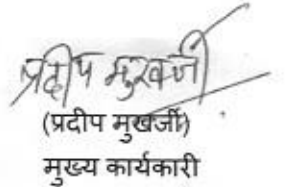 प्रदीप मुखर्जी
(प्रदीप मुखर्जी)
मुख्य कार्यकारी